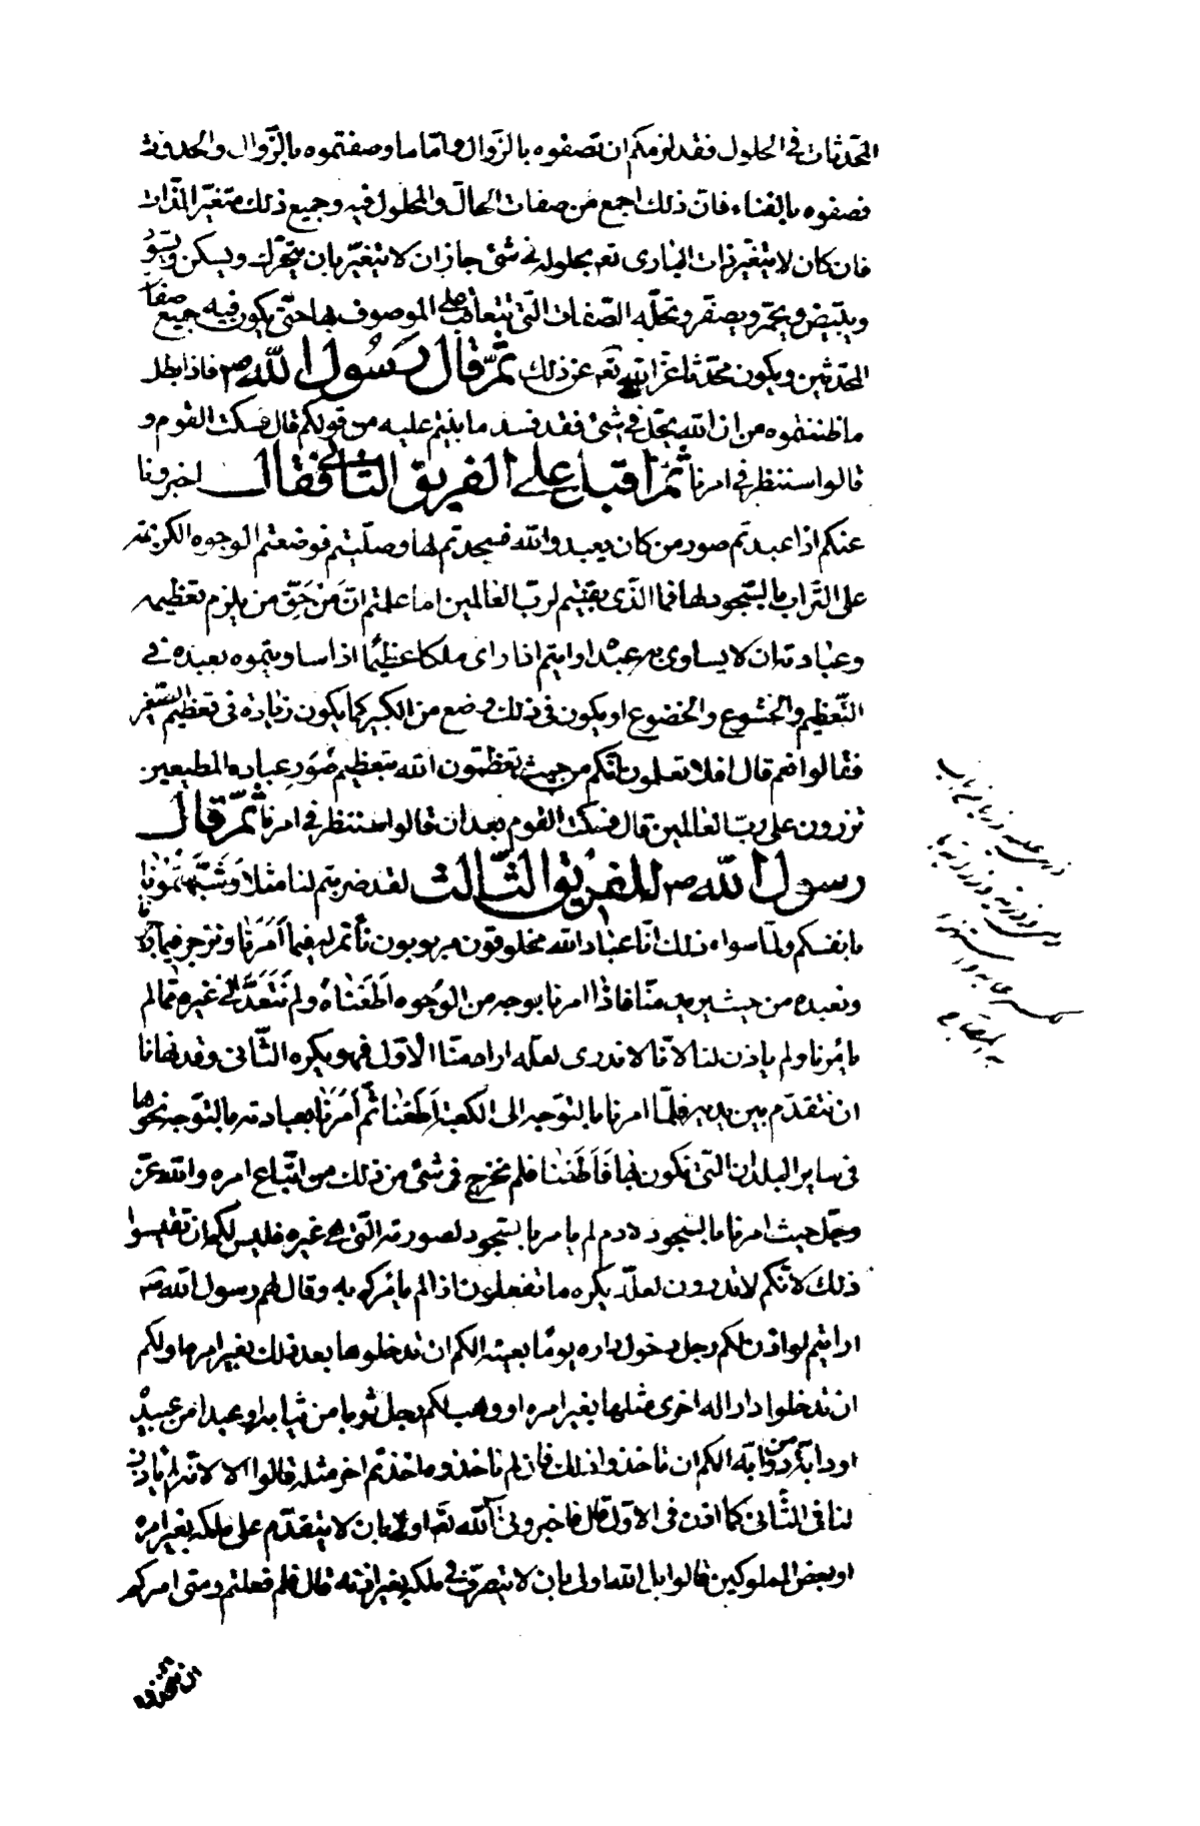 المحدثات في الحلول فقد لزمكم ان تصفوه بالزوال واما ما وصفتموه بالزوال والحدوث
فصفوه بالفناء فان ذلك اجمع من صفات الحال والمحلول فيه وجميع ذلك متغير الذات
فان كان لا يتغير ذات الباري تعـ بحلوله في شئ جاز ان لا يتغير بان يتحرك ويسكن ويسود
ويبيض ويحمر ويصفر وتحله الصفات التي تتعاقب على الموصوف بها حتى يكون فيه جميع صفات
المحدثين ويكون محدثا عز الله تعـ عن ذلك ثم قال رسول الله صـ فاذا بطل
ما ظننتموه من ان الله يحل في شئ فقد فسد ما بنيتم عليه من قولكم قال فسكت القوم و
قالوا سننظر في امرنا ثم اقبل على الفريق الثاني فقال اخبرونا
عنكم اذا عبدتم صور من كان يعبد والله فسجدتم لها وصليتم فوضعتم الوجوه الكريمة
على التراب بالسجود لها فما الذي بقيتم لرب العالمين اما علمتم ان من حق من يلزم تعظيمه
وعبادته ان لا يساوى به عبده ارايتم اذا راى ملكا عظيما اذا ساويتموه بعبده في
التعظيم والخشوع والخضوع او يكون في ذلك وضع من الكبير كما يكون زيادة في تعظيم الصغير
فقالوا نعم قال افلا تعلمون انكم من حيث تعظمون الله بتعظيم صور عباده المطيعين
تزرون على رب العالمين قال فسكت القوم بعد ان قالوا سننظر في امرنا ثم قال
رسول الله صـ للفريق الثالث لقد ضربتم لنا مثلا وشبهتمونا
بانفسكم ولسنا سواء ذلك انا عباد الله مخلوقون مربوبون نأتمر له فيما امرنا وننزجر فيما زجرنا
ونعبده من حيث يريد منا فاذا امرنا بوجه من الوجوه اطعناه ولم نتعد الى غيره مما لم
يامرنا ولم ياذن لنا لانا لا ندري لعله اراد منا الاول فهو يكره الثاني وقد نهانا
ان نتقدم بين يديه فلما امرنا بالتوجه الى الكعبة اطعنا ثم امرنا بعبادته بالتوجه نحوها
في ساير البلدان التي نكون بها فاطعنا فلم نخرج في شئ من ذلك من اتباع امره والله عز
وجل حيث امرنا بالسجود لادم لم يامرنا بالسجود لصورته التي هي غيره فليس لكم ان تقيسوا
ذلك لانكم لا تدرون لعله يكره ما تفعلون اذ لم يامركم به وقال لهم رسول الله صـ
ارايتم لو اذن لكم رجل دخول داره يوما بعينه الكم ان تدخلوها بعد ذلك بغير امره او لكم
ان تدخلوا دارا له اخرى مثلها بغير امره او وهب لكم رجل ثوبا من ثيابه او عبدا من عبيده
او دابة من دوابه الكم ان تاخذوا ذلك فان لم تاخذوه اخذتم اخر مثله قالوا لا لانه لم ياذن
لنا في الثاني كما اذن في الاول قال فاخبروني آلله تعـ اولى بان لا يتقدم على ملكه بغير امره
او بعض المملوكين قالوا بل الله اولى بان لا يتصرف في ملكه بغير اذنه قال فلم فعلتم ومتى امركم
ان تسجدوا